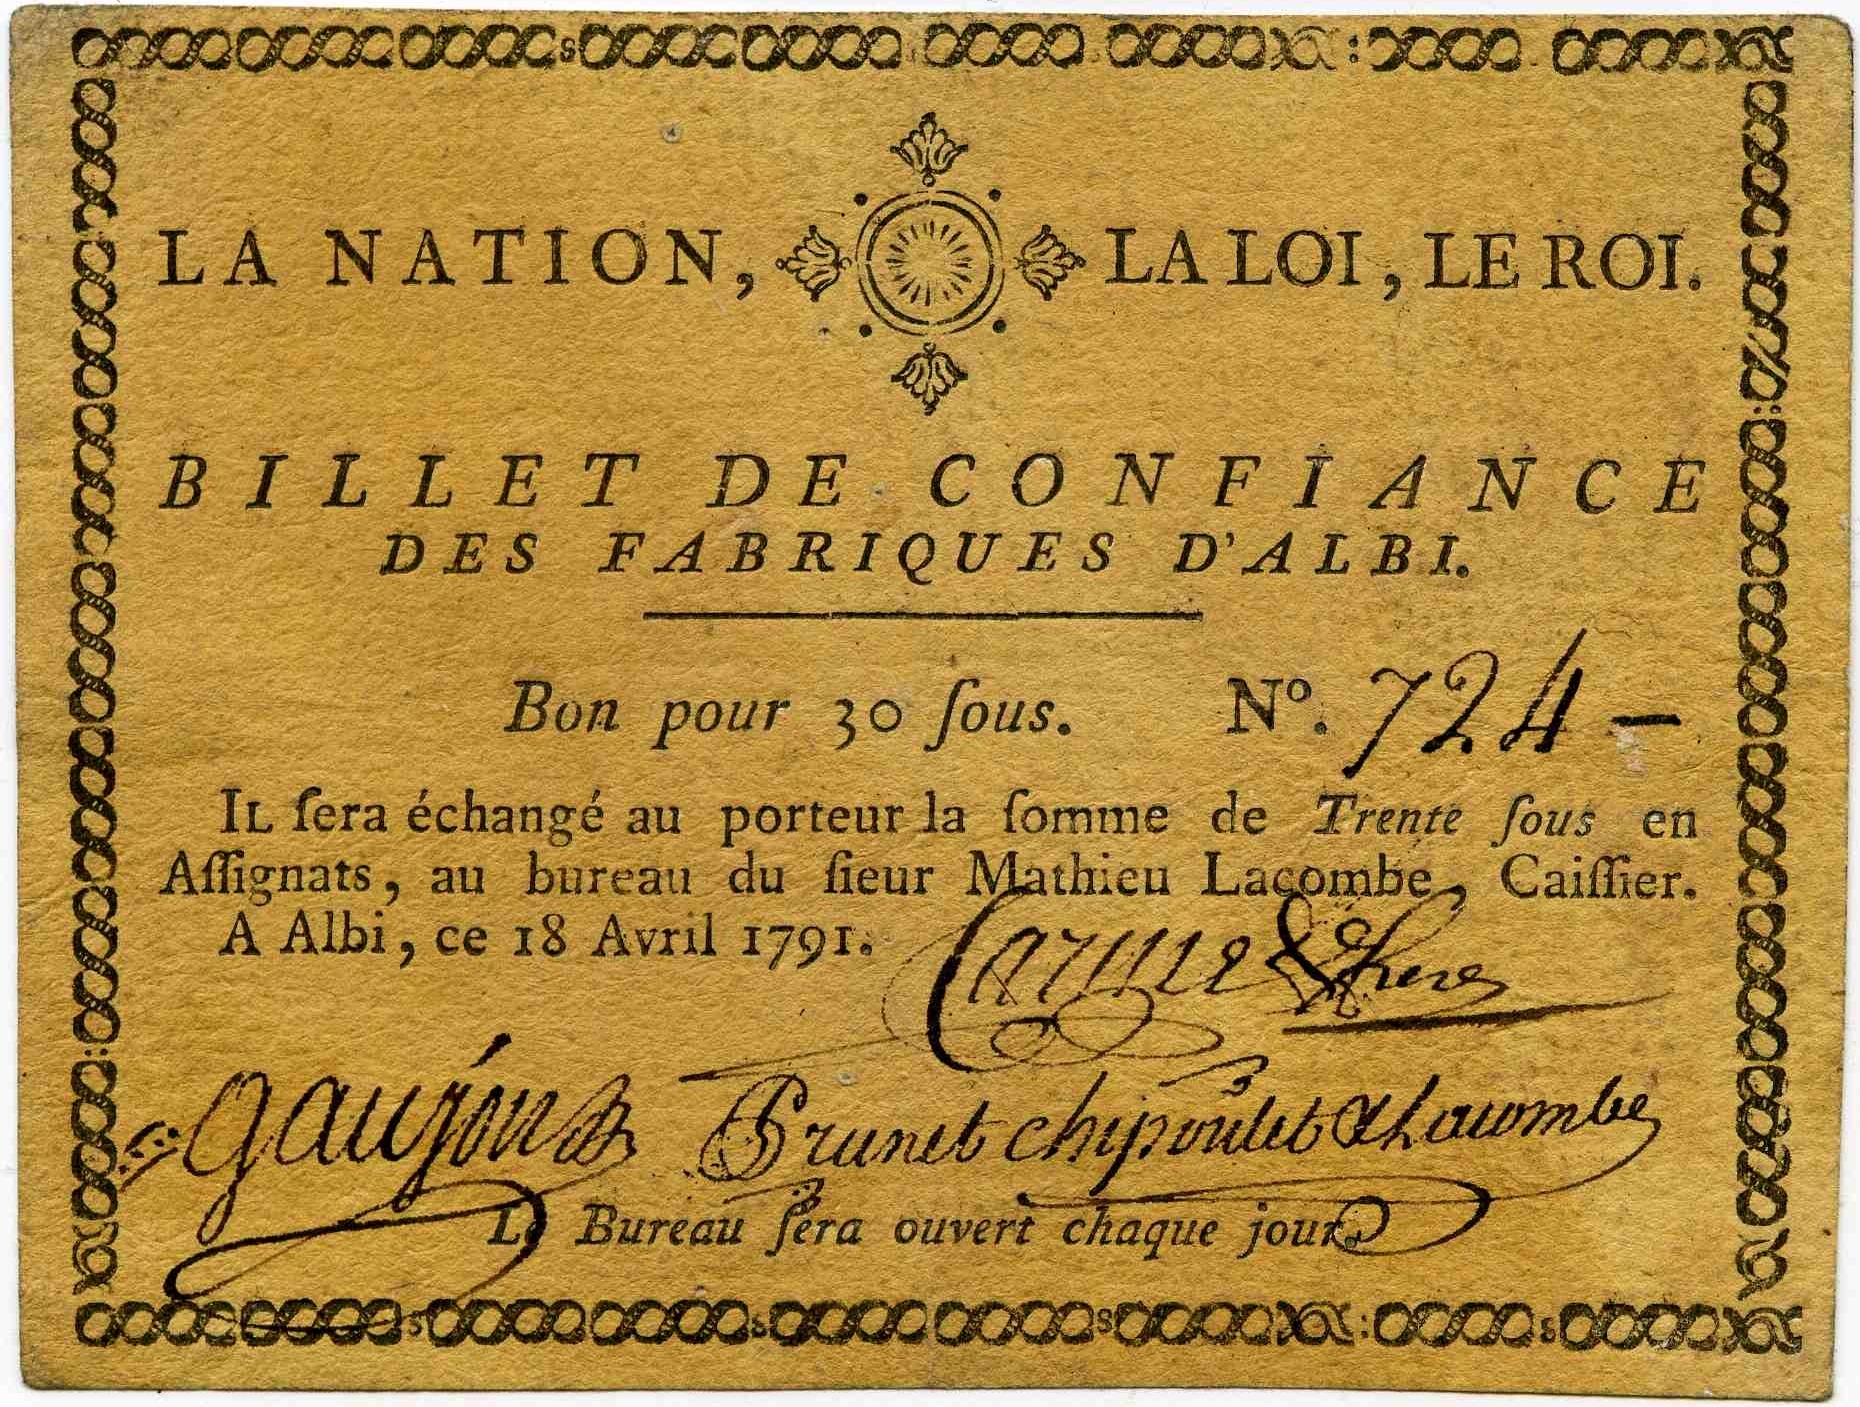 LA NATION, LA LOI, LE ROI.
BILLET DE CONFIANCE
DES FABRIQUES D'ALBI.
Bon pour 30 ſous. Nº. 724 —
IL ſera échangé au porteur la ſomme de Trente ſous en
Aſſignats, au bureau du ſieur Mathieu Lacombe, Caiſſier.
A Albi, ce 18 Avril 1791.
Carme & frere
gaujou Brunet chipoulet & Lacombe
Le Bureau ſera ouvert chaque jour.